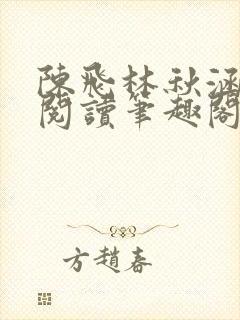 陳飛林秋涵
閱讀筆趣閣
方趙春